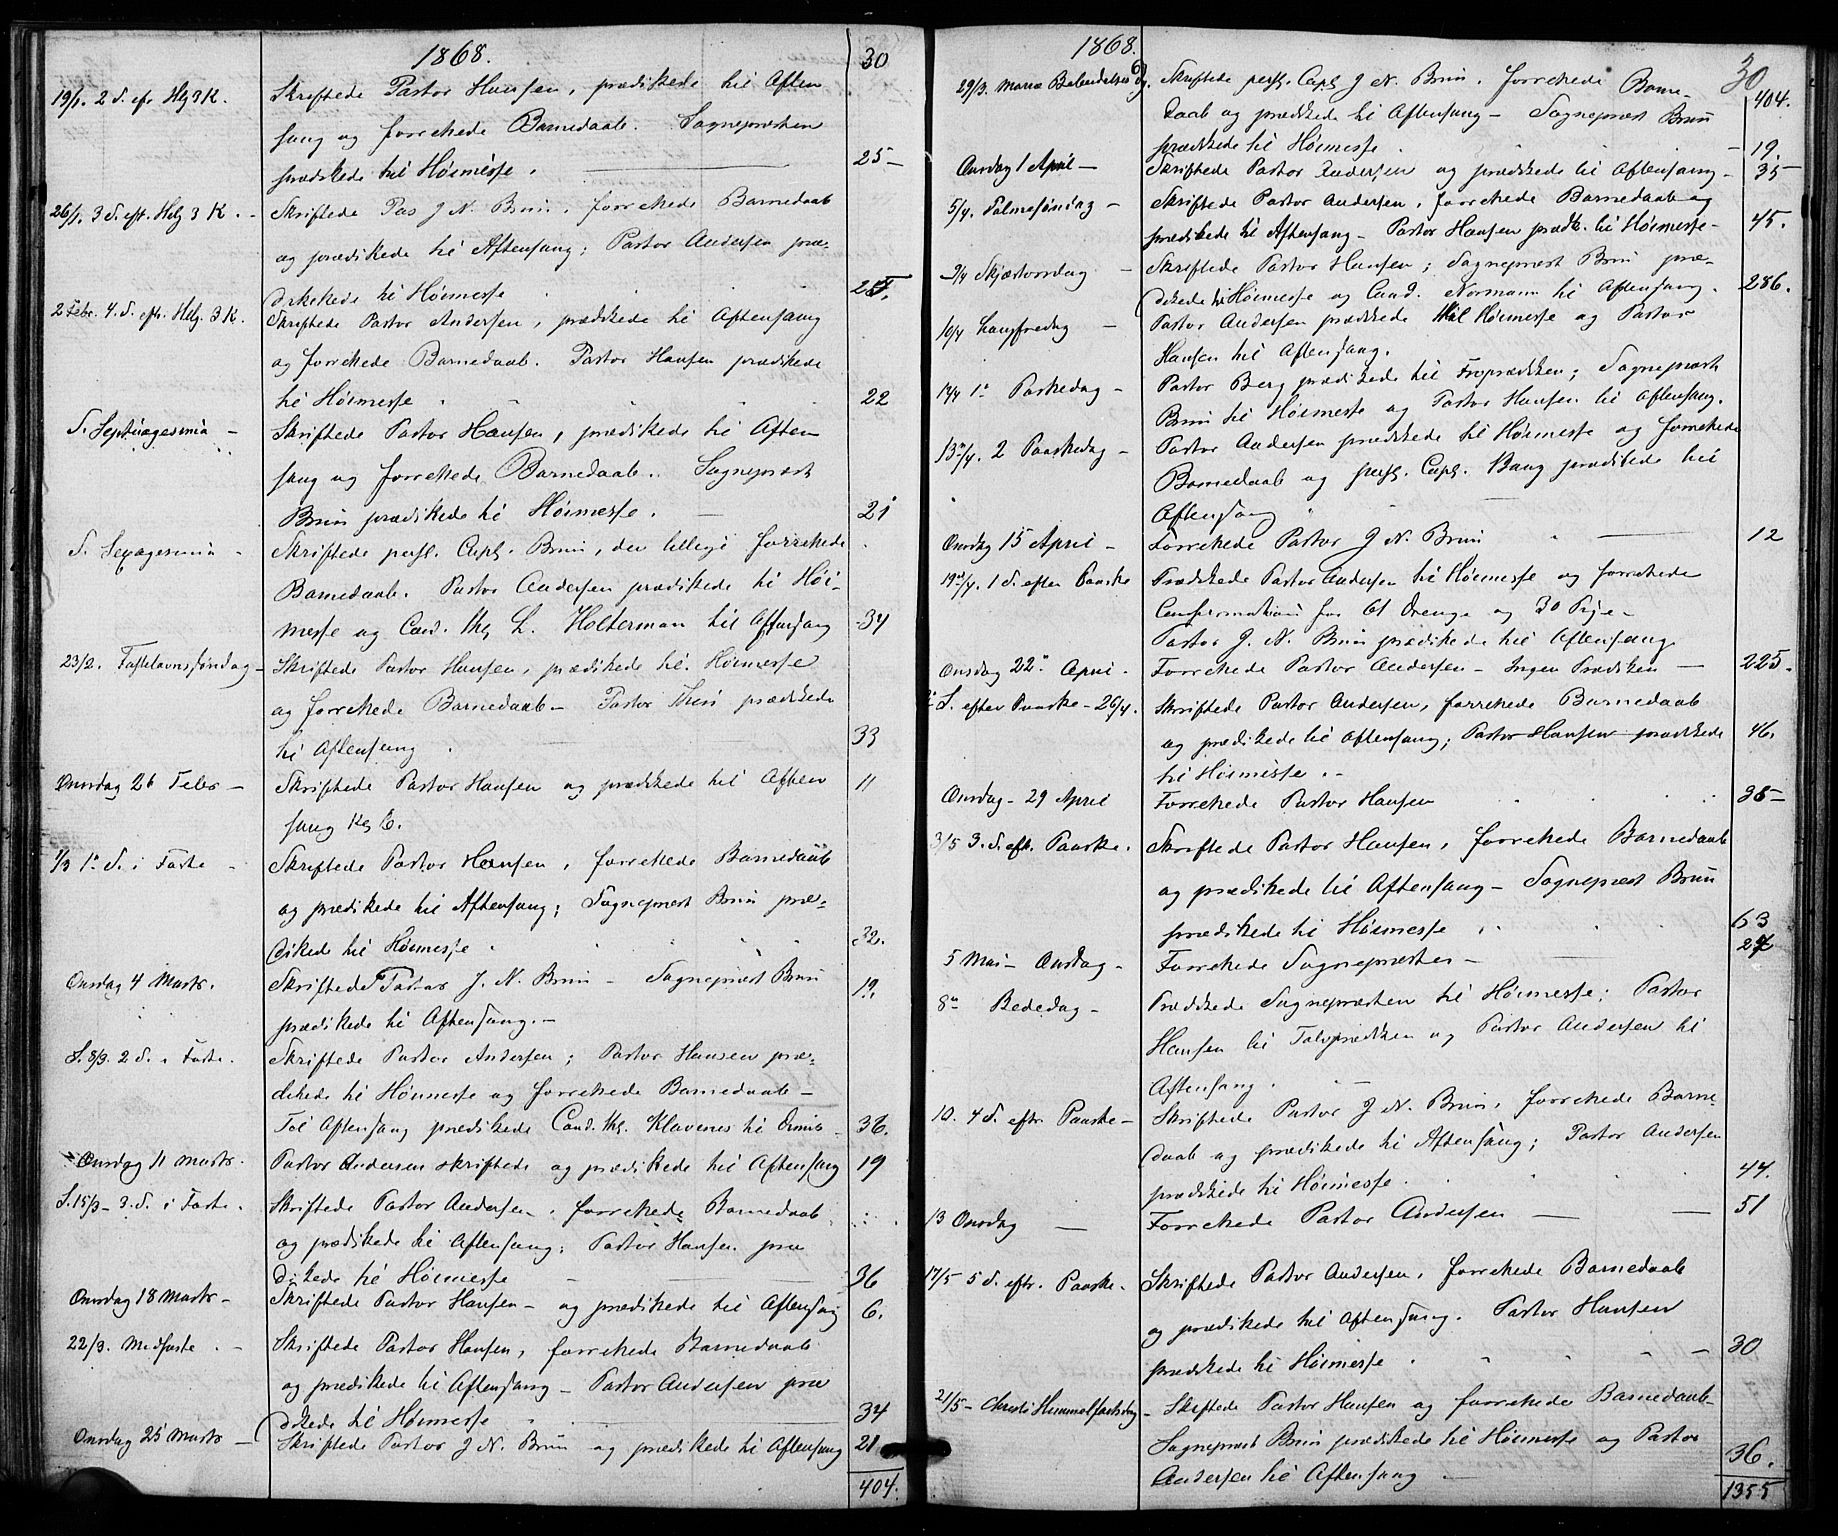 1868.
30
19/1. 2 S. eftr Hlg 3 K. Skriftede Pastor Hansen, prædikede til Aften
sang og forrettede Barnedaab. Sognepræsten
prædikede til Høimesse. 25 –
26/1. 3 S. eft. Helg 3 K. – Skriftede Pas J N. Brun, forrettede Barnedaab
og prædikede til Aftensang; Pastor Andersen præ-
dikede til Høimesse
2 Febr. 4. S. eftr. Helg. 3 K. Skriftede Pastor Andersen, prædikede til Aftensang
og forrettede Barnedaab. Pastor Hansen prædikede
til Høimesse 22
S. Septuagesima – Skriftede Pastor Hansen, prædikede til Aften
sang og forrettede Barnedaab. Sognepræst
Brun prædikede til Høimesse. 21
S. Sexagesima – Skriftede persl. Capl. Brun, der tillige forrettede
Barnedaab. Pastor Andersen prædikede til Høi-
messe og Cand. thg L. Holterman til Aftensang 34
23/2. Fastelavnssøndag – Skriftede Pastor Hansen, prædikede til Høimesse
og forrettede Barnedaab – Pastor prædikede
til Aftensang. 33
Onsdag 26 Febr – Skriftede Pastor Hansen og prædikede til Aften 11
sang Kg 6.
1/3 1ste S. i Faste – Skriftede Pastor Hansen, forrettede Barnedaab
og prædikede til Aftensang; Sognepræst Brun præ-
dikede til Høimesse 32.
Onsdag 4 Marts. Skriftede Pastor J. N. Brun – Sognepræst Brun 19.
prædikede til Aftensang. –
S. 8/3. 2 S. i Faste. Skriftede Pastor Andersen; Pastor Hansen præ-
dikede til Høimesse og forrettede Barnedaab –
Til Aftensang prædikede Cand. thg. Klavenes til Dimis – 36.
Onsdag 11 Marts. Pastor Andersen skriftede og prædikede til Aftensang 19
S. 15/3 – 3. S. i Faste. Skriftede Pastor Andersen, forrettede Barnedaab
og prædikede til Aftensang; Pastor Hansen præ
dikede til Høimesse 36
Onsdag 18 Marts – Skriftede Pastor Hansen – og prædikede til Aftensang 6.
22/3. Midfaste – Skriftede Pastor Hansen, forrettede Barnedaab
og prædikede til Aftensang – Pastor Andersen præ
dikede til Høimesse 34
Onsdag 25 Marts – Skriftede Pastor J N. Brun og prædikede til Aftensang 21
404.
1868.
30
404.
29/3. Mariæ Bebudelses Dg. Skriftede persl. Capl J N. Brun, forrettede Barne-
daab og prædikede til Aftensang – Sognepræst Brun
prædikede til Høimesse. – 19.
Onsdag 1 April – Skriftede Pastor Andersen og prædikede til Aftensang – 35
5/4. Palmesøndag – Skriftede Pastor Andersen, forrettede Barnedaab og
prædikede til Aftensang – Pastor Hansen prædk. til Høimesse – 45.
9/4 Skjærtorsdag – Skriftede Pastor Hansen; Sognepræst Brun præ-
dikede til Høimesse og Cand. Normann til Aftensang. 286.
10/4 Langfredag – Pastor Andersen prædikede til Høimesse og Pastor
Hansen til Aftensang.
12/4 1ste Paaskedag – Pastor Berg prædikede til Froprædiken; Sognepræst
Brun til Høimesse og Pastor Hansen til Aftensang.
13/4. 2 Paaskedag – Pastor Andersen prædikede til Høimesse og forrettede
Barnedaab og persl. Capl. Bang prædikede til
Aftensang
Onsdag 15 April – Forrettede Pastor J N. Brun 12
19/4. 1 S. efter Paaske Prædikede Pastor Andersen til Høimesse og forrettede
Confirmation for 61 Drenge og 30 Pige –
Pastor J. N. Brun prædikede til Aftensang
Onsdag 22de April. Forrettede Pastor Andersen – Ingen Prædiken – 225.
2 S. efter Paaske – 26/4. Skriftede Pastor Andersen, forrettede Barnedaab
og prædikede til Aftensang; Pastor Hansen prædikede 46.
til Høimesse. –
Onsdag – 29 April Forrettede Pastor Hansen
3/5 3. S. eft. Paaske. Skriftede Pastor Hansen, forrettede Barnedaab
og prædikede til Aftensang – Sognepræst Brun
prædikede til Høimesse 63
5 Mai – Onsdag – Forrettede Sognepræsten –
8de Bededag – Prædikede Sognepræsten til Høimesse; Pastor
Hansen til Tolvprædiken og Pastor Andersen til
Aftensang. –
10. 4 S. eftr Paaske – Skriftede Pastor J N. Brun, forrettede Barne-
daab og prædikede til Aftensang; Pastor Andersen
prædikede til Høimesse. 44.
13 Onsdag – Forrettede Pastor Andersen – 51
17/5 5 S. eftr. Paaske. Skriftede Pastor Andersen, forrettede Barnedaab
og prædikede til Aftensang. Pastor Hansen
prædikede til Høimesse 30
21/5 – Christi Himmelfartsdag – Skriftede Pastor Hansen og forrettede Barnedaab –
Sognepræst Brun prædikede til Høimesse og Pastor
Andersen til Aftensang 36.
1355